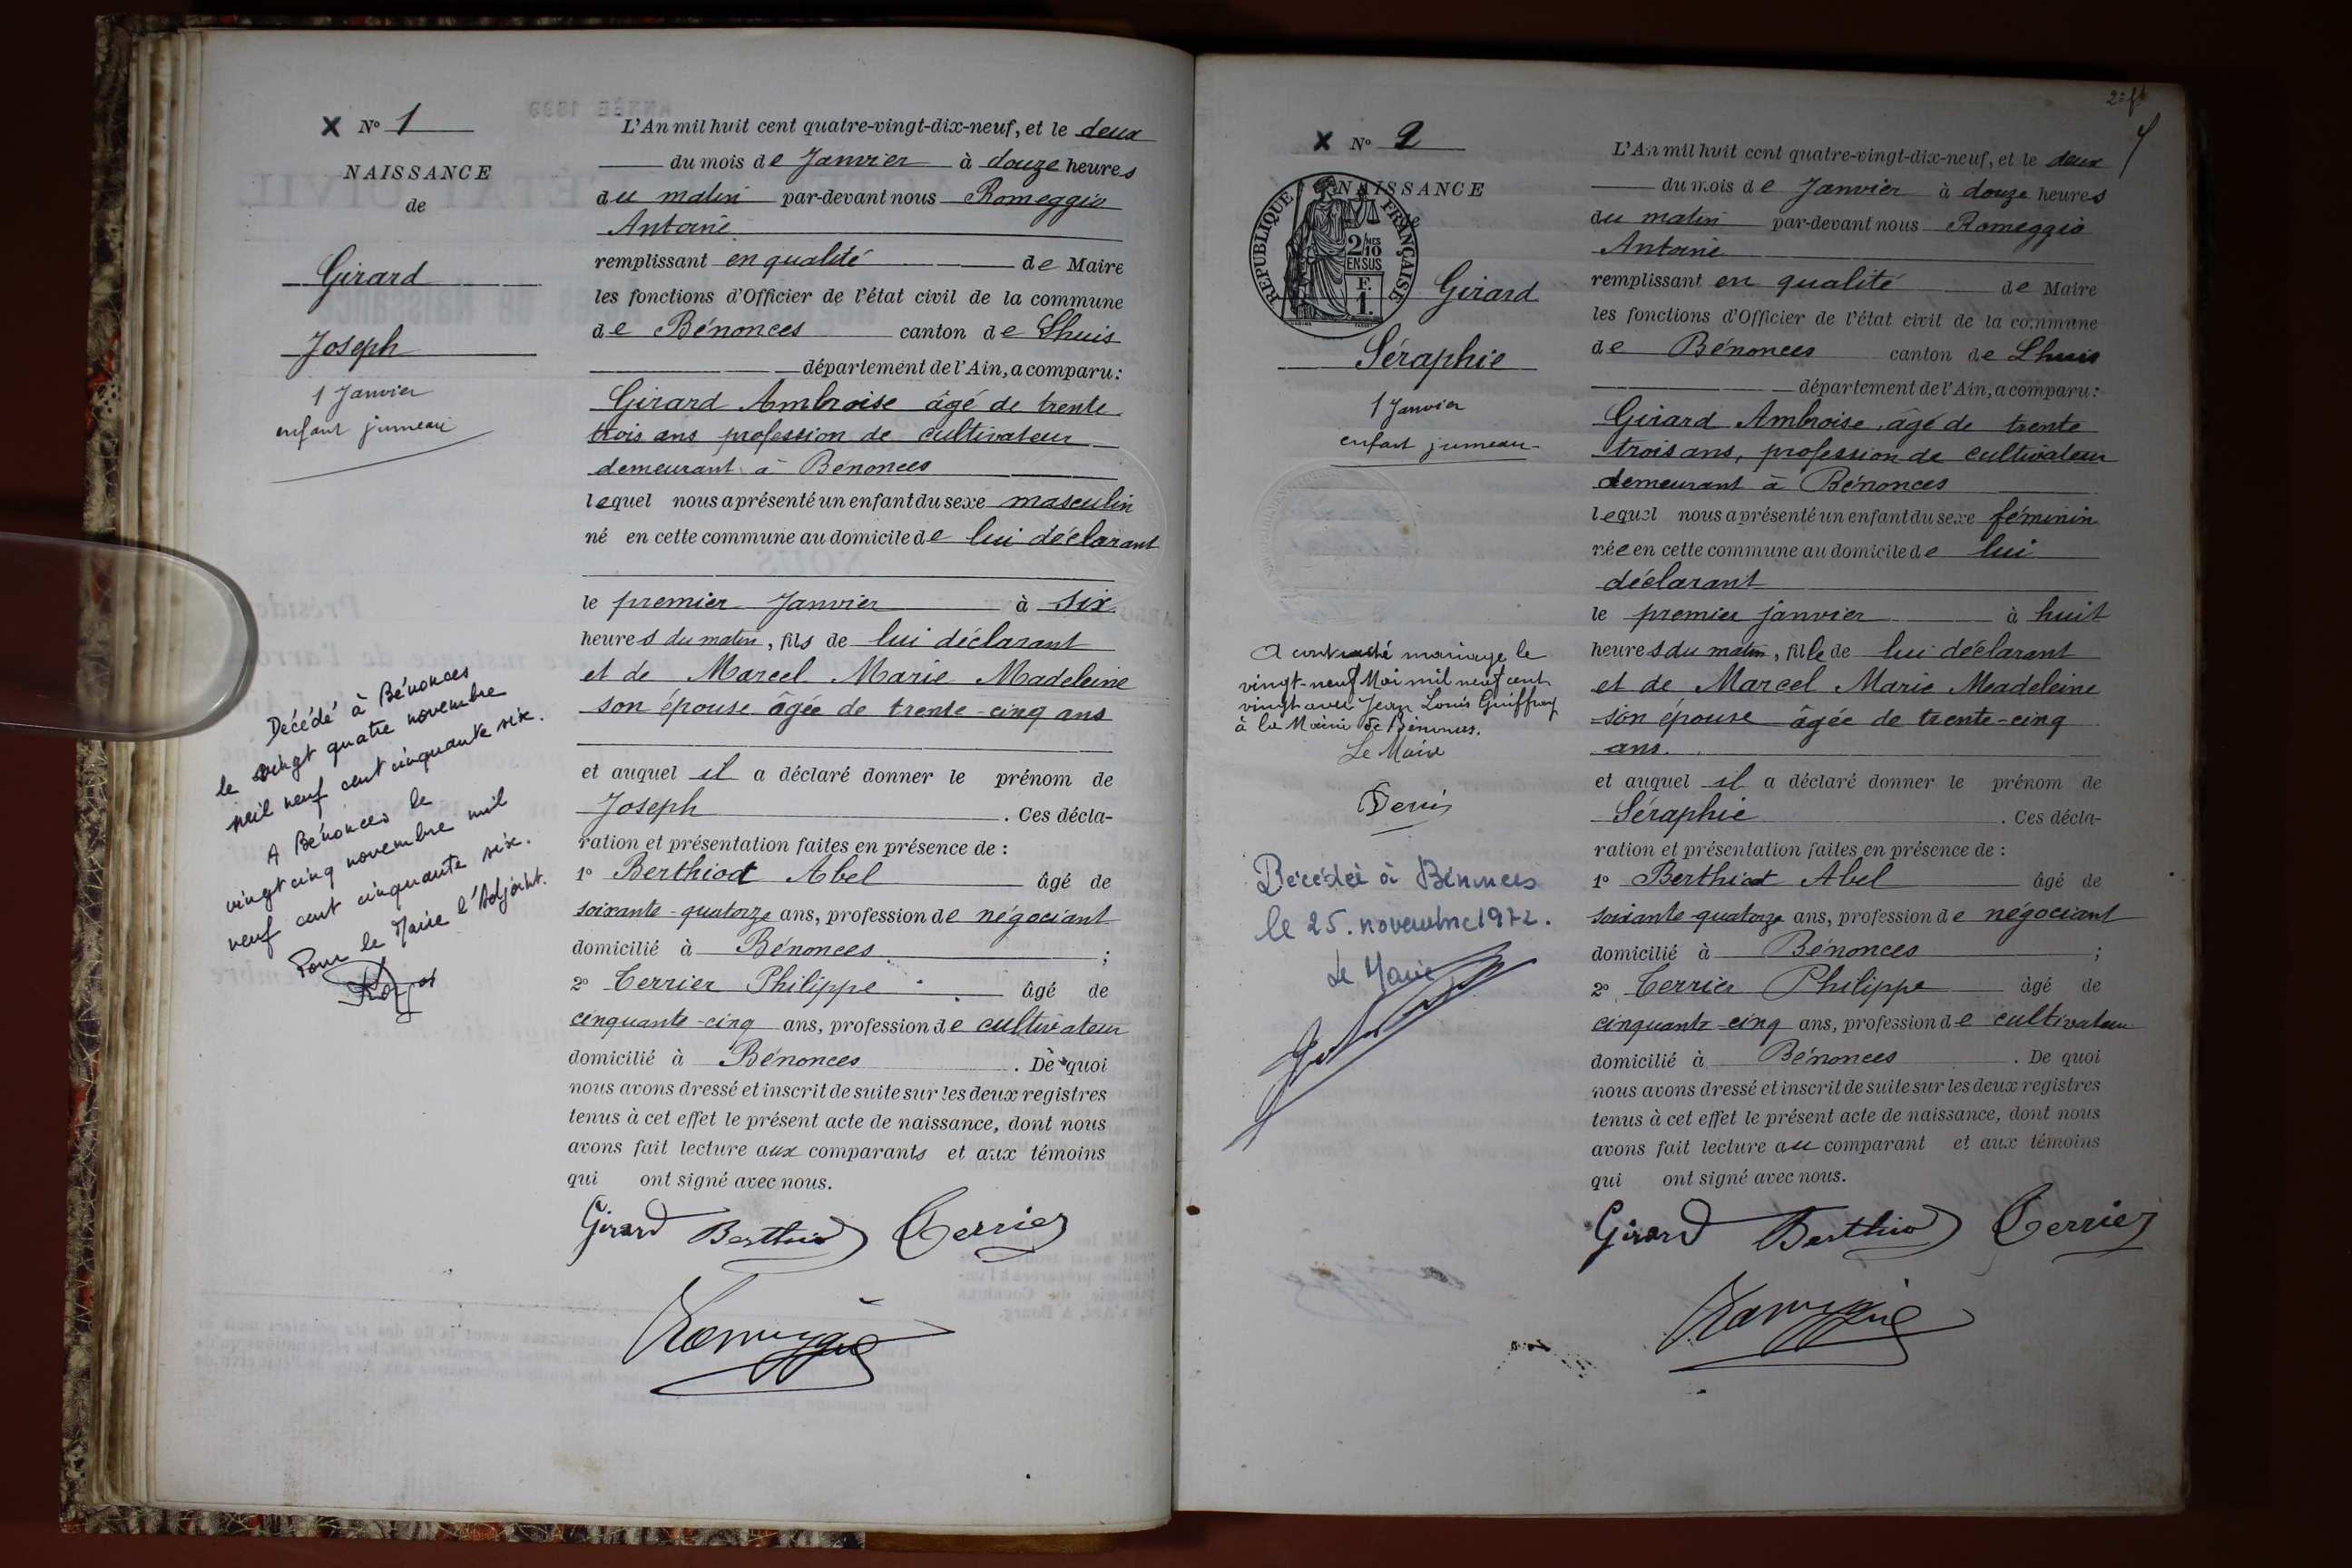 X Nº 1
NAISSANCE
de
Girard
Joseph
1 Janvier
enfant jumeau
Décédé à Bénonces
le vingt quatre novembre
mil neuf cent cinquante six.
A Bénonces le
vingt cinq novembre mil
neuf cent cinquante six.
Pour le Maire l'Adjoint.
L'An mil huit cent quatre-vingt-dix-neuf, et le deux
du mois de Janvier à douze heures
du matin par-devant nous Romeggio
Antoine
remplissant en qualité de Maire
les fonctions d'Officier de l'état civil de la commune
de Bénonces canton de Lhuis
département de l'Ain, a comparu:
Girard Ambroise âgé de trente
trois ans profession de cultivateur
demeurant à Bénonces
lequel nous a présenté un enfant du sexe masculin
né en cette commune au domicile de lui déclarant
le premier Janvier à six
heures du matin, fils de lui déclarant
et de Marcel Marie Madeleine
son épouse âgée de trente-cinq ans
et auquel il a déclaré donner le prénom de
Joseph. Ces décla-
ration et présentation faites en présence de :
1º Berthiot Abel âgé de
soixante-quatorze ans, profession de négociant
domicilié à Bénonces ;
2º Terrier Philippe âgé de
cinquante-cinq ans, profession de cultivateur
domicilié à Bénonces. De quoi
nous avons dressé et inscrit de suite sur les deux registres
tenus à cet effet le présent acte de naissance, dont nous
avons fait lecture aux comparants et aux témoins
qui ont signé avec nous.
Girard Berthiot Terrier
Romeggio
X Nº 2
NAISSANCE
de
REPUBLIQUE FRANÇAISE
2/10 MES
EN SUS
F.
1.
Girard
Séraphie
1 Janvier
enfant jumeau
A contracté mariage le
vingt-neuf Mai mil neuf cent
vingt avec Jean Louis Guiffray
à la Mairie de Bénonces.
Le Maire
Denis
Décédée à Bénonces
le 25. novembre 1972.
Le Maire
2e ft
L'An mil huit cent quatre-vingt-dix-neuf, et le deux
du mois de Janvier à douze heures
du matin par-devant nous Romeggio
Antoine
remplissant en qualité de Maire
les fonctions d'Officier de l'état civil de la commune
de Bénonces canton de Lhuis
département de l'Ain, a comparu:
Girard Ambroise, âgé de trente
trois ans, profession de cultivateur
demeurant à Bénonces
lequel nous a présenté un enfant du sexe féminin
née en cette commune au domicile de lui
déclarant
le premier janvier à huit
heures du matin, fille de lui déclarant
et de Marcel Marie Madeleine
son épouse âgée de trente-cinq
ans.
et auquel il a déclaré donner le prénom de
Séraphie. Ces décla-
ration et présentation faites en présence de :
1º Berthiot Abel âgé de
soixante-quatorze ans, profession de négociant
domicilié à Bénonces ;
2º Terrier Philippe âgé de
cinquante-cinq ans, profession de cultivateur
domicilié à Bénonces. De quoi
nous avons dressé et inscrit de suite sur les deux registres
tenus à cet effet le présent acte de naissance, dont nous
avons fait lecture au comparant et aux témoins
qui ont signé avec nous.
Girard Berthiot Terrier
Romeggio